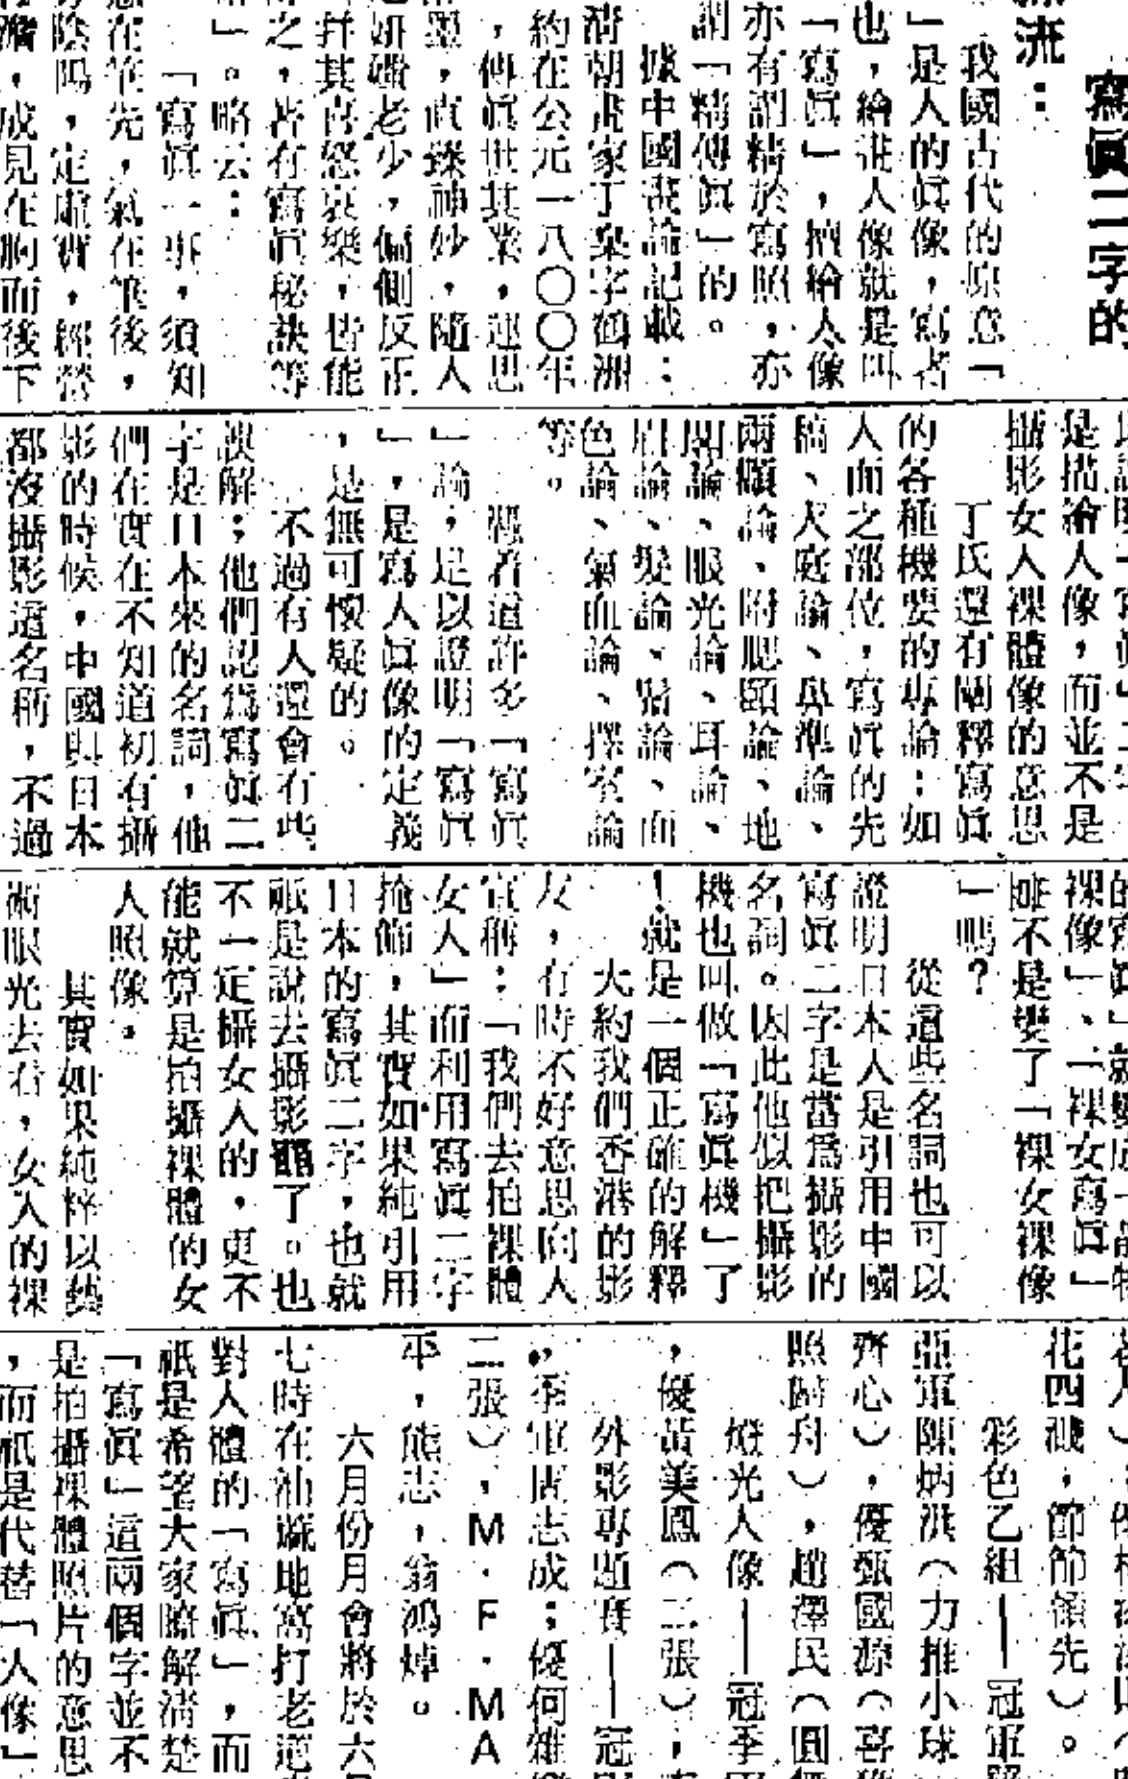 寫眞二字的
流：
我國古代的原意「
」是人的眞像，寫者
也，繪畫人像就是叫
「寫眞」，擅繪人像
亦有謂精於寫照，亦
謂「精傳眞」的。
據中國畫論記載：
清朝畫家丁皋字鶴洲
約在公元一八〇〇年
，傳眞世其業，運思
墨，直臻神妙，隨人
妍媸老少，偏側反正
幷其喜怒哀樂，皆能
之，著有寫眞秘訣等
」。略云：
「寫眞一事，須知
意在筆先，氣在筆後，
陰陽，定虛實，經營
，成見在胸而後下
是描繪人像，而並不是
攝影女人裸體像的意思
丁氏還有闡釋寫眞
的各種機要的專論：如
人面之部位，寫眞的先
稿、天庭論、鼻準論、
兩顴論、附腮頤論、地
閣論、眼光論、耳論、
眉論、髮論、鬚論、面
色論、氣血論、擇室論
等。
憑着這許多「寫眞
」論，足以證明「寫眞
」，是寫人眞像的定義
，是無可懷疑的。
不過有人還會有些
誤解；他們認爲寫眞二
字是日本來的名詞，他
們在實在不知道初有攝
影的時候，中國與日本
都沒攝影這名稱，不過
裸像」、「裸女寫眞」
雖不是變了「裸女裸像
」嗎？
從這些名詞也可以
證明日本人是引用中國
寫眞二字是當爲攝影的
名詞。因此他似把攝影
機也叫做「寫眞機」了
！就是一個正確的解釋
大約我們香港的影
友，有時不好意思向人
宣稱：「我們去拍裸體
女人」而利用寫眞二字
掩飾，其實如果純引用
日本的寫眞二字，也就
祇是說去攝影了。也
不一定攝女人的，更不
能就算是拍攝裸體的女
人照像。
其實如果純粹以藝
術眼光去看，女人的裸
花四濺，節節領先）。
彩色乙組——冠軍
亞軍陳炳洪（力推小球
齊心），優甄國源（喜
照歸舟），趙澤民（圓
燈光人像——冠季
，優黃美鳳（二張），
外影專題賽——冠
，季軍唐志成；優何維
二張），M．F．MA
平，熊志，翁鴻焯。
六月份月會將於六
七時在油蔴地窩打老道
對人體的「寫眞」，而
祇是希望大家瞭解清楚
「寫眞」這兩個字並不
是拍攝裸體照片的意思
，而祇是代替「人像」